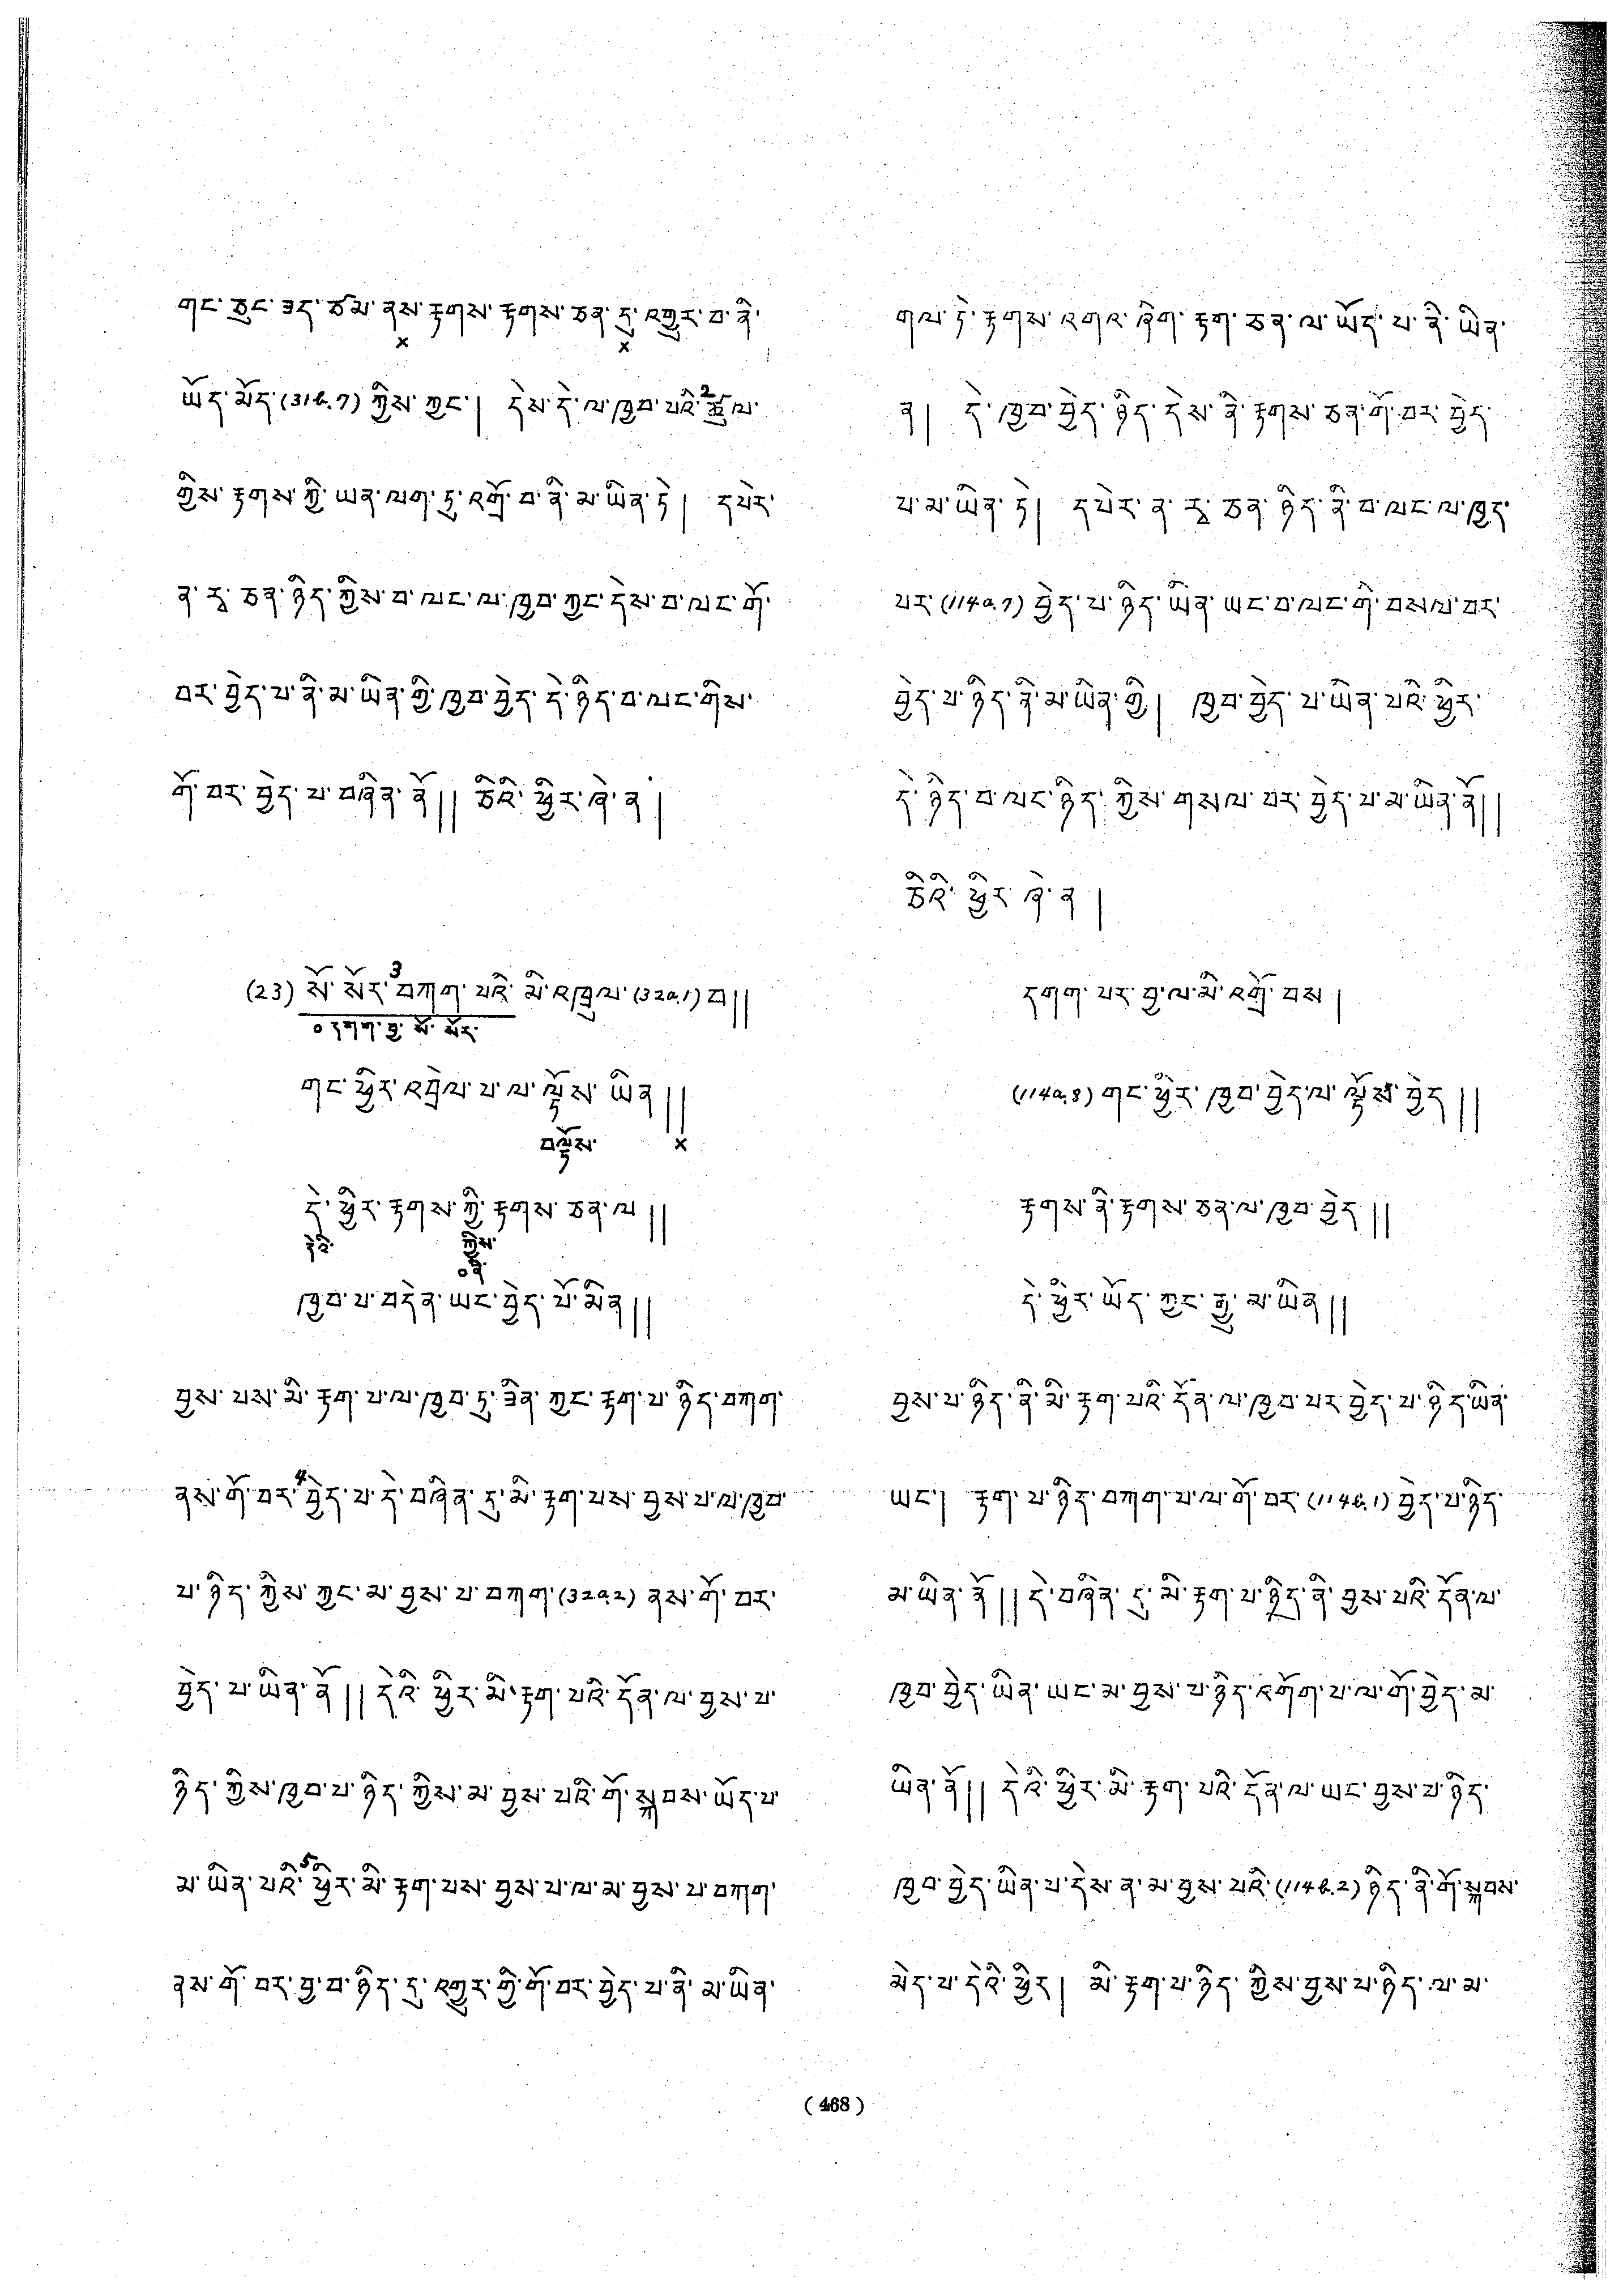 གང་ཅུང་ཟད་ཙམ་ནས་རྟགས་རྟགས་ཅན་དུ་འགྱུར་བ་ནི་
×
×
ཡོད་མོད་(31b.7) ཀྱིས་ཀྱང་། དེས་དེ་ལ་ཁྱབ་པའི་2ཚུལ་
གྱིས་རྟགས་ཀྱི་ཡན་ལག་ཏུ་འགྲོ་བ་ནི་མ་ཡིན་ཏེ། དཔེར་
ན་རྭ་ཅན་ཉིད་ཀྱིས་བ་ལང་ལ་ཁྱབ་ཀྱང་དེས་བ་ལང་གོ་
བར་བྱེད་པ་ནི་མ་ཡིན་གྱི་ཁྱབ་བྱེད་དེ་ཉིད་བ་ལང་གིས་
གོ་བར་བྱེད་པ་བཞིན་ནོ།། ཅིའི་ཕྱིར་ཞེ་ན།
(23) སོ་སོར་3བཀག་པའི་མི་འཁྲུལ་(32a.1) བ།།
○དགག་བྱ་སོ་སོར་
གང་ཕྱིར་འབྲེལ་པ་ལ་ལྟོས་ཡིན།།
བལྟོས་ ×
དེ་ཕྱིར་རྟགས་ཀྱི་རྟགས་ཅན་ལ།།
དེའི་ ཀྱིས་
○ནི་
ཁྱབ་པ་བདེན་ཡང་བྱེད་པོ་མིན།།
བྱས་པས་མི་རྟག་པ་ལ་ཁྱབ་ཏུ་ཟིན་ཀྱང་རྟག་པ་ཉིད་བཀག་
ནས་གོ་བར་4བྱེད་པ་དེ་བཞིན་དུ་མི་རྟག་པས་བྱས་པ་ལ་ཁྱབ་
པ་ཉིད་ཀྱིས་ཀྱང་མ་བྱས་པ་བཀག་(32a.2) ནས་གོ་བར་
བྱེད་པ་ཡིན་ནོ།། དེའི་ཕྱིར་མི་རྟག་པའི་དོན་ལ་བྱས་པ་
ཉིད་ཀྱིས་ཁྱབ་པ་ཉིད་ཀྱིས་མ་བྱས་པའི་གོ་སྐབས་ཡོད་པ་
མ་ཡིན་པའི་5ཕྱིར་མི་རྟག་པས་བྱས་པ་ལ་མ་བྱས་པ་བཀག་
ནས་གོ་བར་བྱ་བ་ཉིད་དུ་འགྱུར་གྱི་གོ་བར་བྱེད་པ་ནི་མ་ཡིན་
གལ་ཏེ་རྟགས་འགའ་ཞིག་རྟག་ཅན་ལ་ཡོད་པ་ནི་ཡིན་
ན། དེ་ཁྱབ་བྱེད་ཉིད་དེས་ནི་རྟགས་ཅན་གོ་བར་བྱེད་
པ་མ་ཡིན་ཏེ། དཔེར་ན་རྭ་ཅན་ཉིད་ནི་བ་ལང་ལ་ཁྱད་
པར་(114a.7) བྱེད་པ་ཉིད་ཡིན་ཡང་བ་ལང་གི་བསལ་བར་
བྱེད་པ་ཉིད་ནི་མ་ཡིན་གྱི། ཁྱབ་བྱེད་པ་ཡིན་པའི་ཕྱིར་
དེ་ཉིད་བ་ལང་ཉིད་ཀྱིས་གསལ་བར་བྱེད་པ་མ་ཡིན་ནོ།།
ཅིའི་ཕྱིར་ཞེ་ན།
དགག་པར་བྱ་ལ་མི་འགྲོ་བས།
(114a.8) གང་ཕྱིར་ཁྱབ་བྱེད་ལ་ལྟོས་བྱེད།།
རྟགས་ནི་རྟགས་ཅན་ལ་ཁྱབ་བྱེད།།
དེ་ཕྱིར་ཡོད་ཀྱང་རྒྱུ་མ་ཡིན།།
བྱས་པ་ཉིད་ནི་མི་རྟག་པའི་དོན་ལ་ཁྱབ་པར་བྱེད་པ་ཉིད་ཡིན་
ཡང་། རྟག་པ་ཉིད་བཀག་པ་ལ་གོ་བར་(114b.1) བྱེད་པ་ཉིད་
མ་ཡིན་ནོ།། དེ་བཞིན་དུ་མི་རྟག་པ་ཉིད་ནི་བྱས་པའི་དོན་ལ་
ཁྱབ་བྱེད་ཡིན་ཡང་མ་བྱས་པ་ཉིད་འགོག་པ་ལ་གོ་བྱེད་མ་
ཡིན་ནོ།། དེའི་ཕྱིར་མི་རྟག་པའི་དོན་ལ་ཡང་བྱས་པ་ཉིད་
ཁྱབ་བྱེད་ཡིན་པ་དེས་ན་མ་བྱས་པའི་(114b.2) ཉིད་ནི་གོ་སྐབས་
མེད་པ་དེའི་ཕྱིར། མི་རྟག་པ་ཉིད་ཀྱིས་བྱས་པ་ཉིད་ལ་མ་
(468)